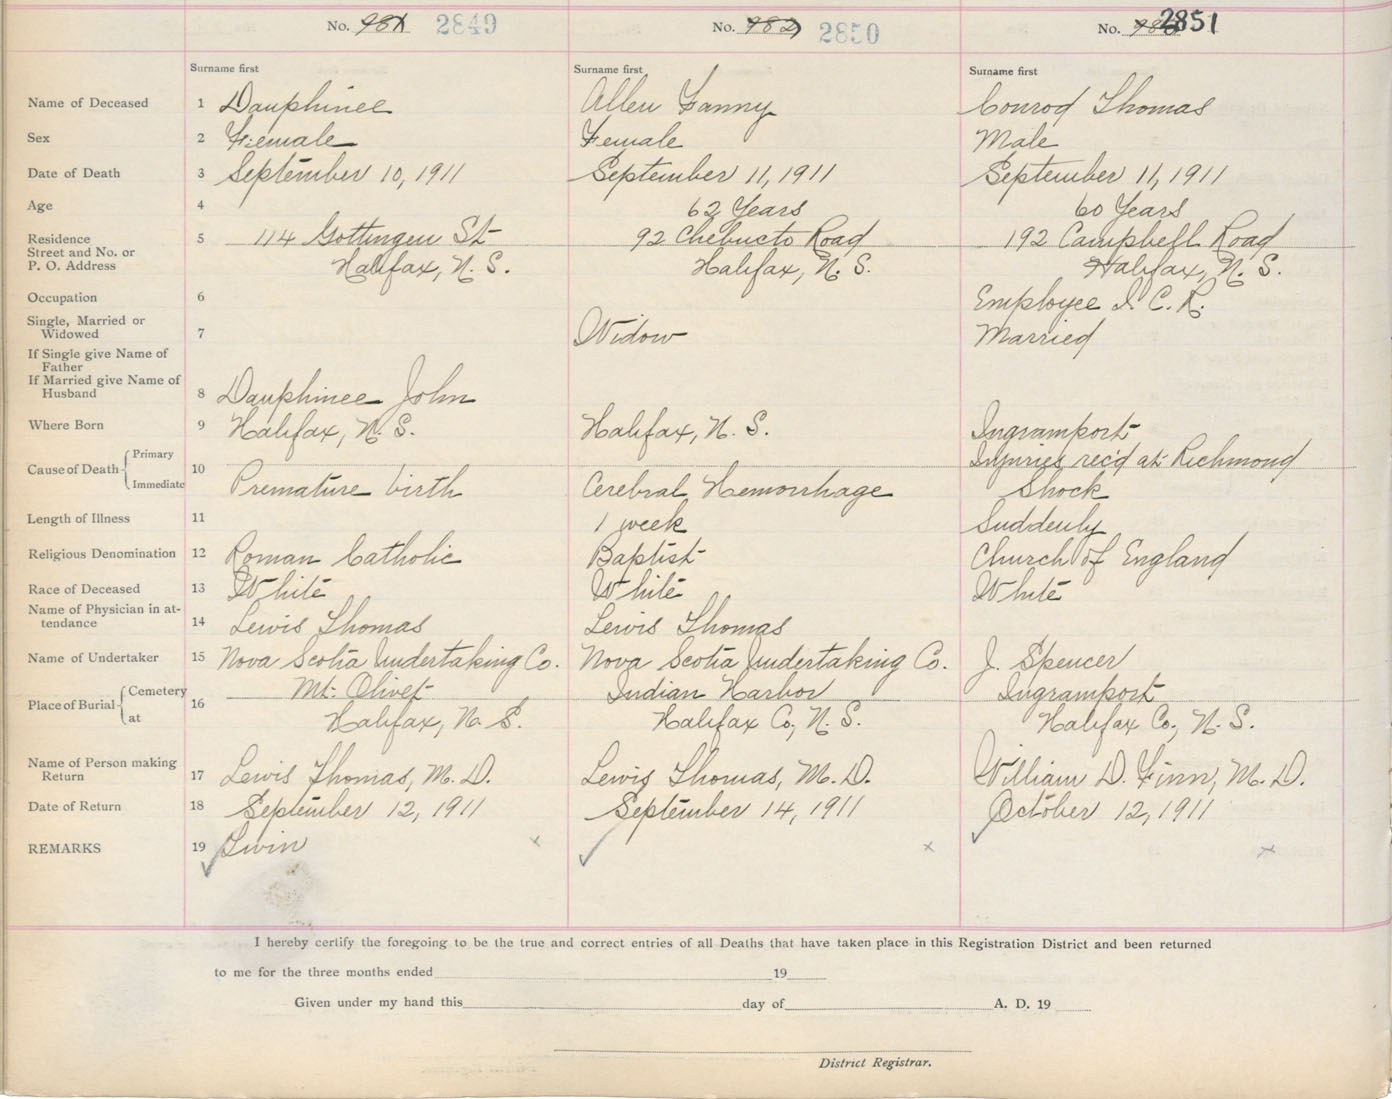 No. 981 2849 No. 982 2850 No. 2851
Surname first Surname first Surname first
Name of Deceased 1 Dauphinee Allen Fanny Conrod Thomas
Sex 2 Female Female Male
Date of Death 3 September 10, 1911 September 11, 1911 September 11, 1911
Age 4 62 Years 60 Years
Residence 5 114 Gottingen St 92 Chebucto Road 192 Campbell Road
Street and No. or
P. O. Address Halifax, N. S. Halifax, N. S. Halifax, N. S.
Occupation 6 Employee I. C. R.
Single, Married or
Widowed 7 Widow Married
If Single give Name of
Father
If Married give Name of
Husband 8 Dauphinee John
Where Born 9 Halifax, N. S. Halifax, N. S. Ingramport
Primary Injuries rec'd at Richmond
Cause of Death 10
Immediate Premature birth Cerebral Hemorrhage Shock
Length of Illness 11 1 week Suddenly
Religious Denomination 12 Roman Catholic Baptist Church of England
Race of Deceased 13 White White White
Name of Physician in at-
tendance 14 Lewis Thomas Lewis Thomas
Name of Undertaker 15 Nova Scotia Undertaking Co. Nova Scotia Undertaking Co. J. Spencer
Cemetery Mt. Olivet Indian Harbor Ingramport
Place of Burial 16
at Halifax, N. S. Halifax Co., N. S. Halifax Co., N. S.
Name of Person making
Return 17 Lewis Thomas, M. D. Lewis Thomas, M. D. William D. Finn, M. D.
Date of Return 18 September 12, 1911 September 14, 1911 October 12, 1911
REMARKS 19 Twin
I hereby certify the foregoing to be the true and correct entries of all Deaths that have taken place in this Registration District and been returned
to me for the three months ended 19
Given under my hand this day of A. D. 19
District Registrar.